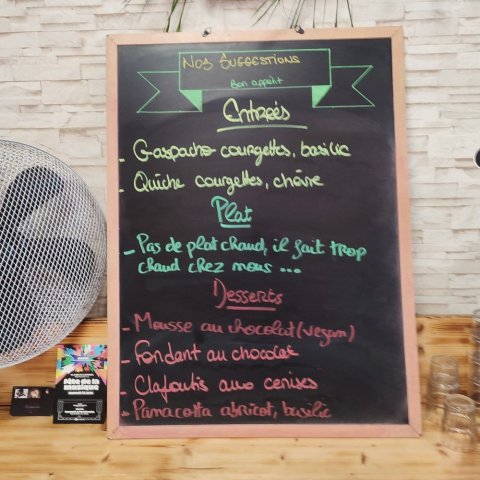 Nos Suggestions
Bon appétit
Entrées
- Gaspacho courgettes, basilic
- Quiche courgettes, chèvre
Plat
- Pas de plat chaud, il fait trop
chaud chez nous ...
Desserts
- Mousse au chocolat (vegan)
- Fondant au chocolat
- Clafoutis aux cerises
- Pannacotta abricot, basilic
fête de la
musique